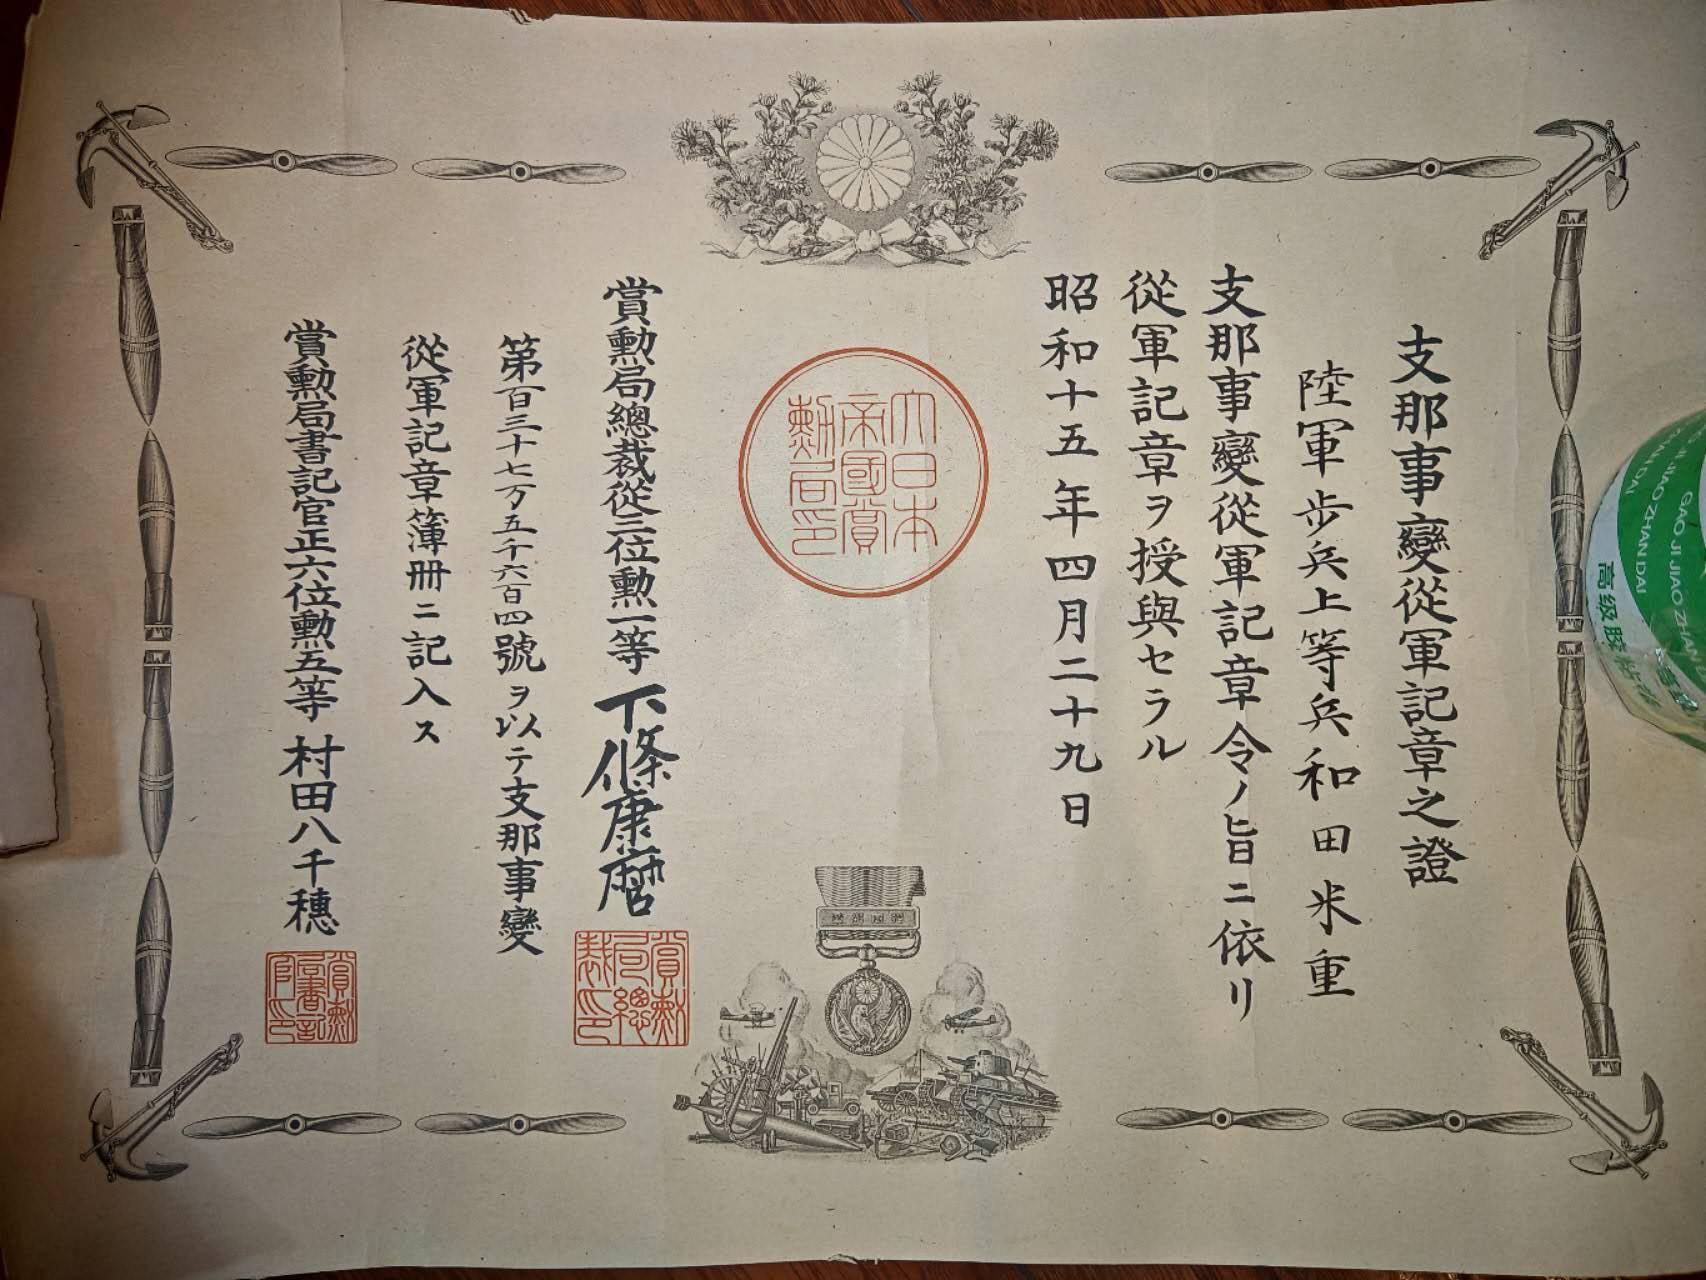 支那事變從軍記章之證
陸軍步兵上等兵和田米重
支那事變從軍記章令ノ旨ニ依リ
從軍記章ヲ授與セラル
昭和十五年四月二十九日
大日本
帝國賞
勳局印
賞勳局總裁從三位勲一等下條康麿
賞勳
局總
裁印
第百三十七万五千六百四號ヲ以テ支那事變
從軍記章簿册ニ記入ス
賞勳局書記官正六位勲五等村田八千穗
賞勳
局書記
官印
GAO JI JIAO ZHAN DAI
高级胶粘带